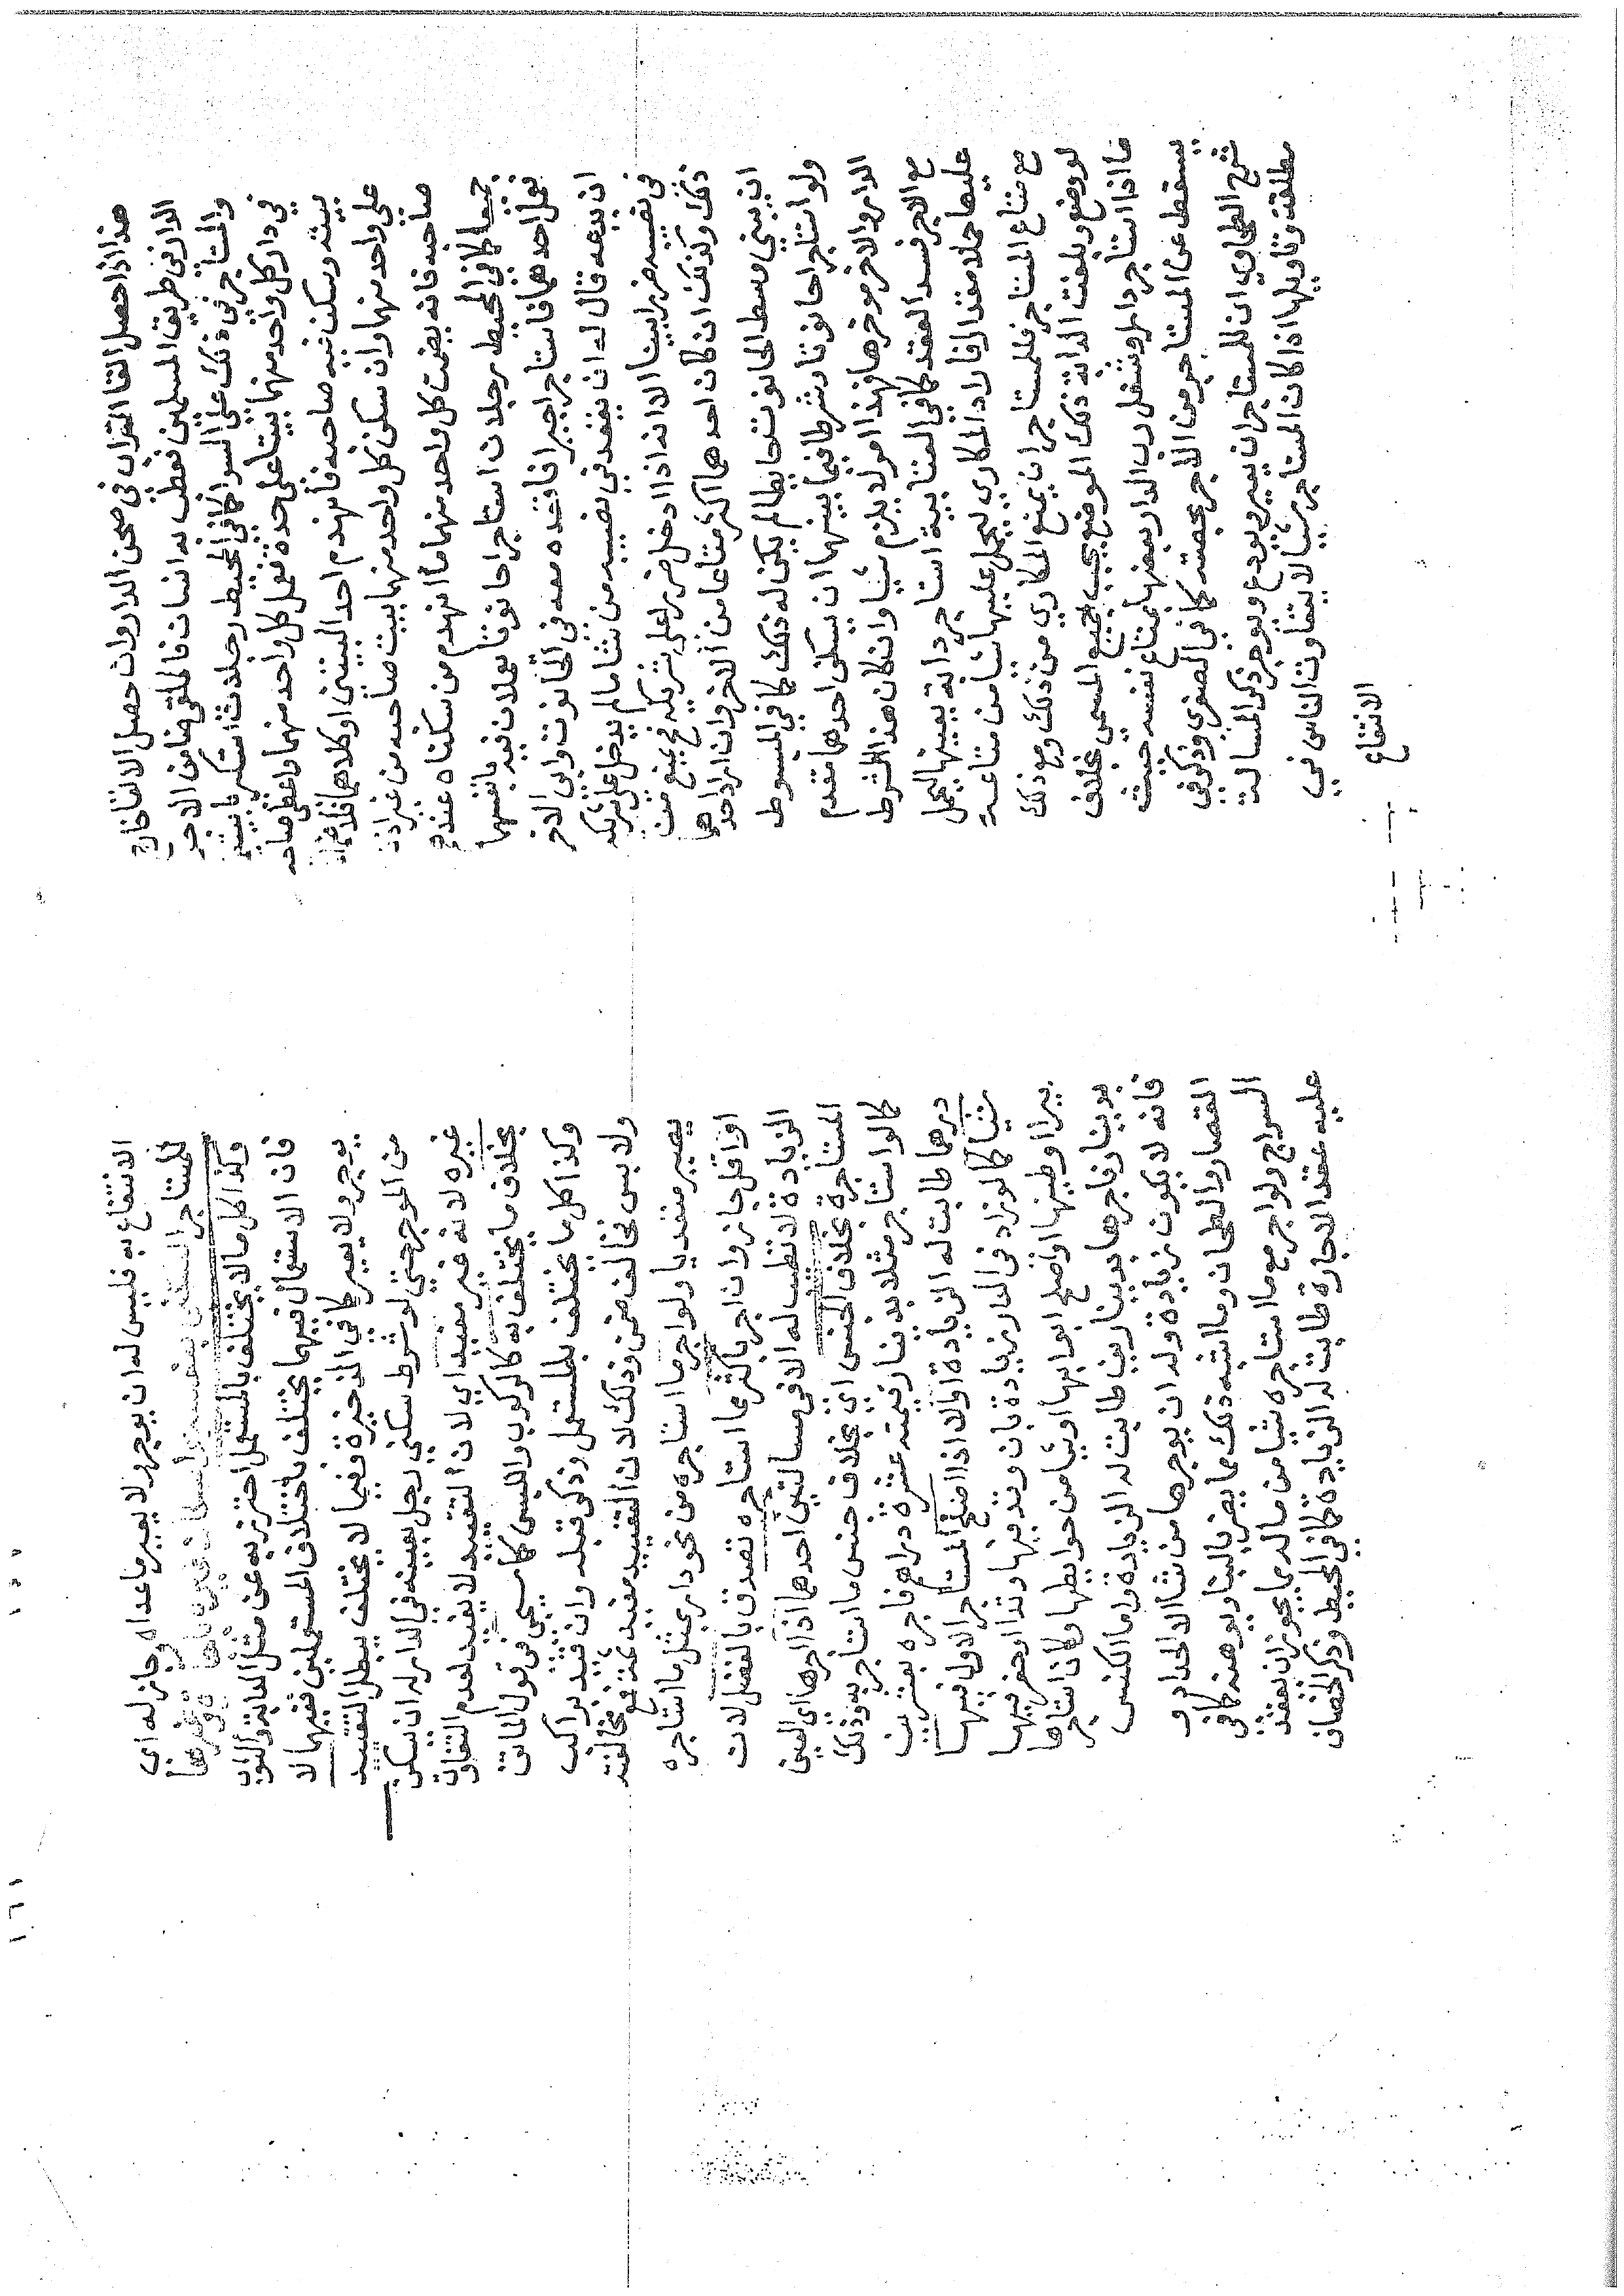 هذا اذا حصل القا التراب في صحن الدار وان حصل الالقا خارج
الدار في طريق المسلمين فعطب به انسان فالملقي ضامن الاجر
والمستاجر في ذلك على السوا كما في المحيط رجلان استكريا بيتين
في دار كل واحد منهما بيتا على حدة فعمل كل واحد منهما واعطى صاحبه
بيته وسكن فيه صاحبه فانهدم احد البيتين او كلاهما فلا ضمان
على واحد منهما وان سكن كل واحد منهما بيت صاحبه من غير اذن
صاحبه فانه يضمن كل واحد منهما ما انهدم من سكناه عندهم
جميعا كما في المحيط رجلان استاجرا حانوتا يعملان فيه بانفسهما
فعمل احدهما فاستاجر اجيرا فاقعده معه في الحانوت وابى الاخر
ان يدعه قال له ان يقعد في نصيبه من شا ما لم يدخل على شريكه
في نصيبه ضررا بينا الا انه اذا ادخل ضررا على شريكه فح يمنع من
ذلك وكذلك ان كان احدهما اكثر متاعا من الاخر وان اراد احدهما
ان يبني وسط الحانوت حايطا لم يكن له ذلك كما في المبسوط
ولو استاجرا حانوتا وشرطا فيما بينهما ان يسكن احدهما مقدم
الدار والاخر موخرها فهذا امر لا يلزم شيا وان كان هذا الشرط
مع الاجر فسد العقد كما في العتابية استاجر دابة بعينها ليحمل
عليها حملا مقدرا فاراد المكاري ليحمل عليها شيا من متاعه
مع متاع المستاجر فللمستاجر ان يمنع المكاري من ذلك ومع ذلك
لو وضع وبلغت الدابة ذلك الموضع يجب جميع المسمى بخلاف
ما اذا استاجر دارا وشغل رب الدار بعضها بمتاع نفسه حيث
يسقط عن المستاجر من الاجر بحصته كما في الصغرى وذكر في
شرح الطحاوي ان للمستاجر ان يعير ويودع ويوجر ذكر المسالة
مطلقة وتاويلها اذا كان المستاجر شيا لا يتفاوت الناس في
الانتفاع
الانتفاع به فليس له ان يوجر ولا يعير ما عداه وجاز له اى
للمستاجر السكنى بنفسه واسكان غيره باجارة وغيرها
وكذا كل ما لا يختلف بالمستعمل احترز به عن مثل الدابة والثوب
فان الاستعمال فيهما يختلف باختلاف المستعملين ففيهما لا
يوجر ولا يعير كما في الذخيرة وفيما لا يختلف يبطل التقييد
من الموجر حتى لو شرط سكنى رجل بعينه في الدار له ان يسكن
غيره لانه غير مفيد اي لان التقييد لا يفيد لعدم التفاوت
بخلاف ما يختلف به كالركوب واللبس كما سيجي في قول الماتن
وكذا كل ما يختلف بالمستعمل وذكر قبله وان قيد براكب
ولابس فخالف ضمن وذلك لان التقييد مفيد فمع مخالفته
يصير متعديا ولو اجر ما استاجره من نحو دار بمثل ما استاجره
او اقل جاز وان اجر باكثر مما استاجره تصدق بالفضل لان
الزيادة لا تطيب له الا في مسالتين احدهما اذا اجرها اي العين
المستاجرة بخلاف الجنس اي بخلاف جنس ما استاجر به وذلك
كما لو استاجر مثلا بدينار قيمته عشرة دراهم فاجره بعشرين
درهما طابت له الزيادة اولا اذا اصلح المستاجر الاول فيها
شيا كما لو زاد في الدار زيادة بان وتد فيها وتدا او حفر فيها
بيرا او طينها او اصلح ابوابها او شيا من حوايطها وكان استاجرها
بدينار فاجرها بدينارين طابت له الزيادة واما الكنس
فانه لا يكون زيادة وله ان يوجرها من شا الا الحداد و
القصار والطحان وما اشبه ذلك مما يضر بالبنا ويوهنه كما في
السراج ولو اجر مع ما استاجره شيا من ماله مما يجوز ان تعقد
عليه عقد الاجارة طابت له الزيادة كما في المحيط وذكر الخصاف
١٦١